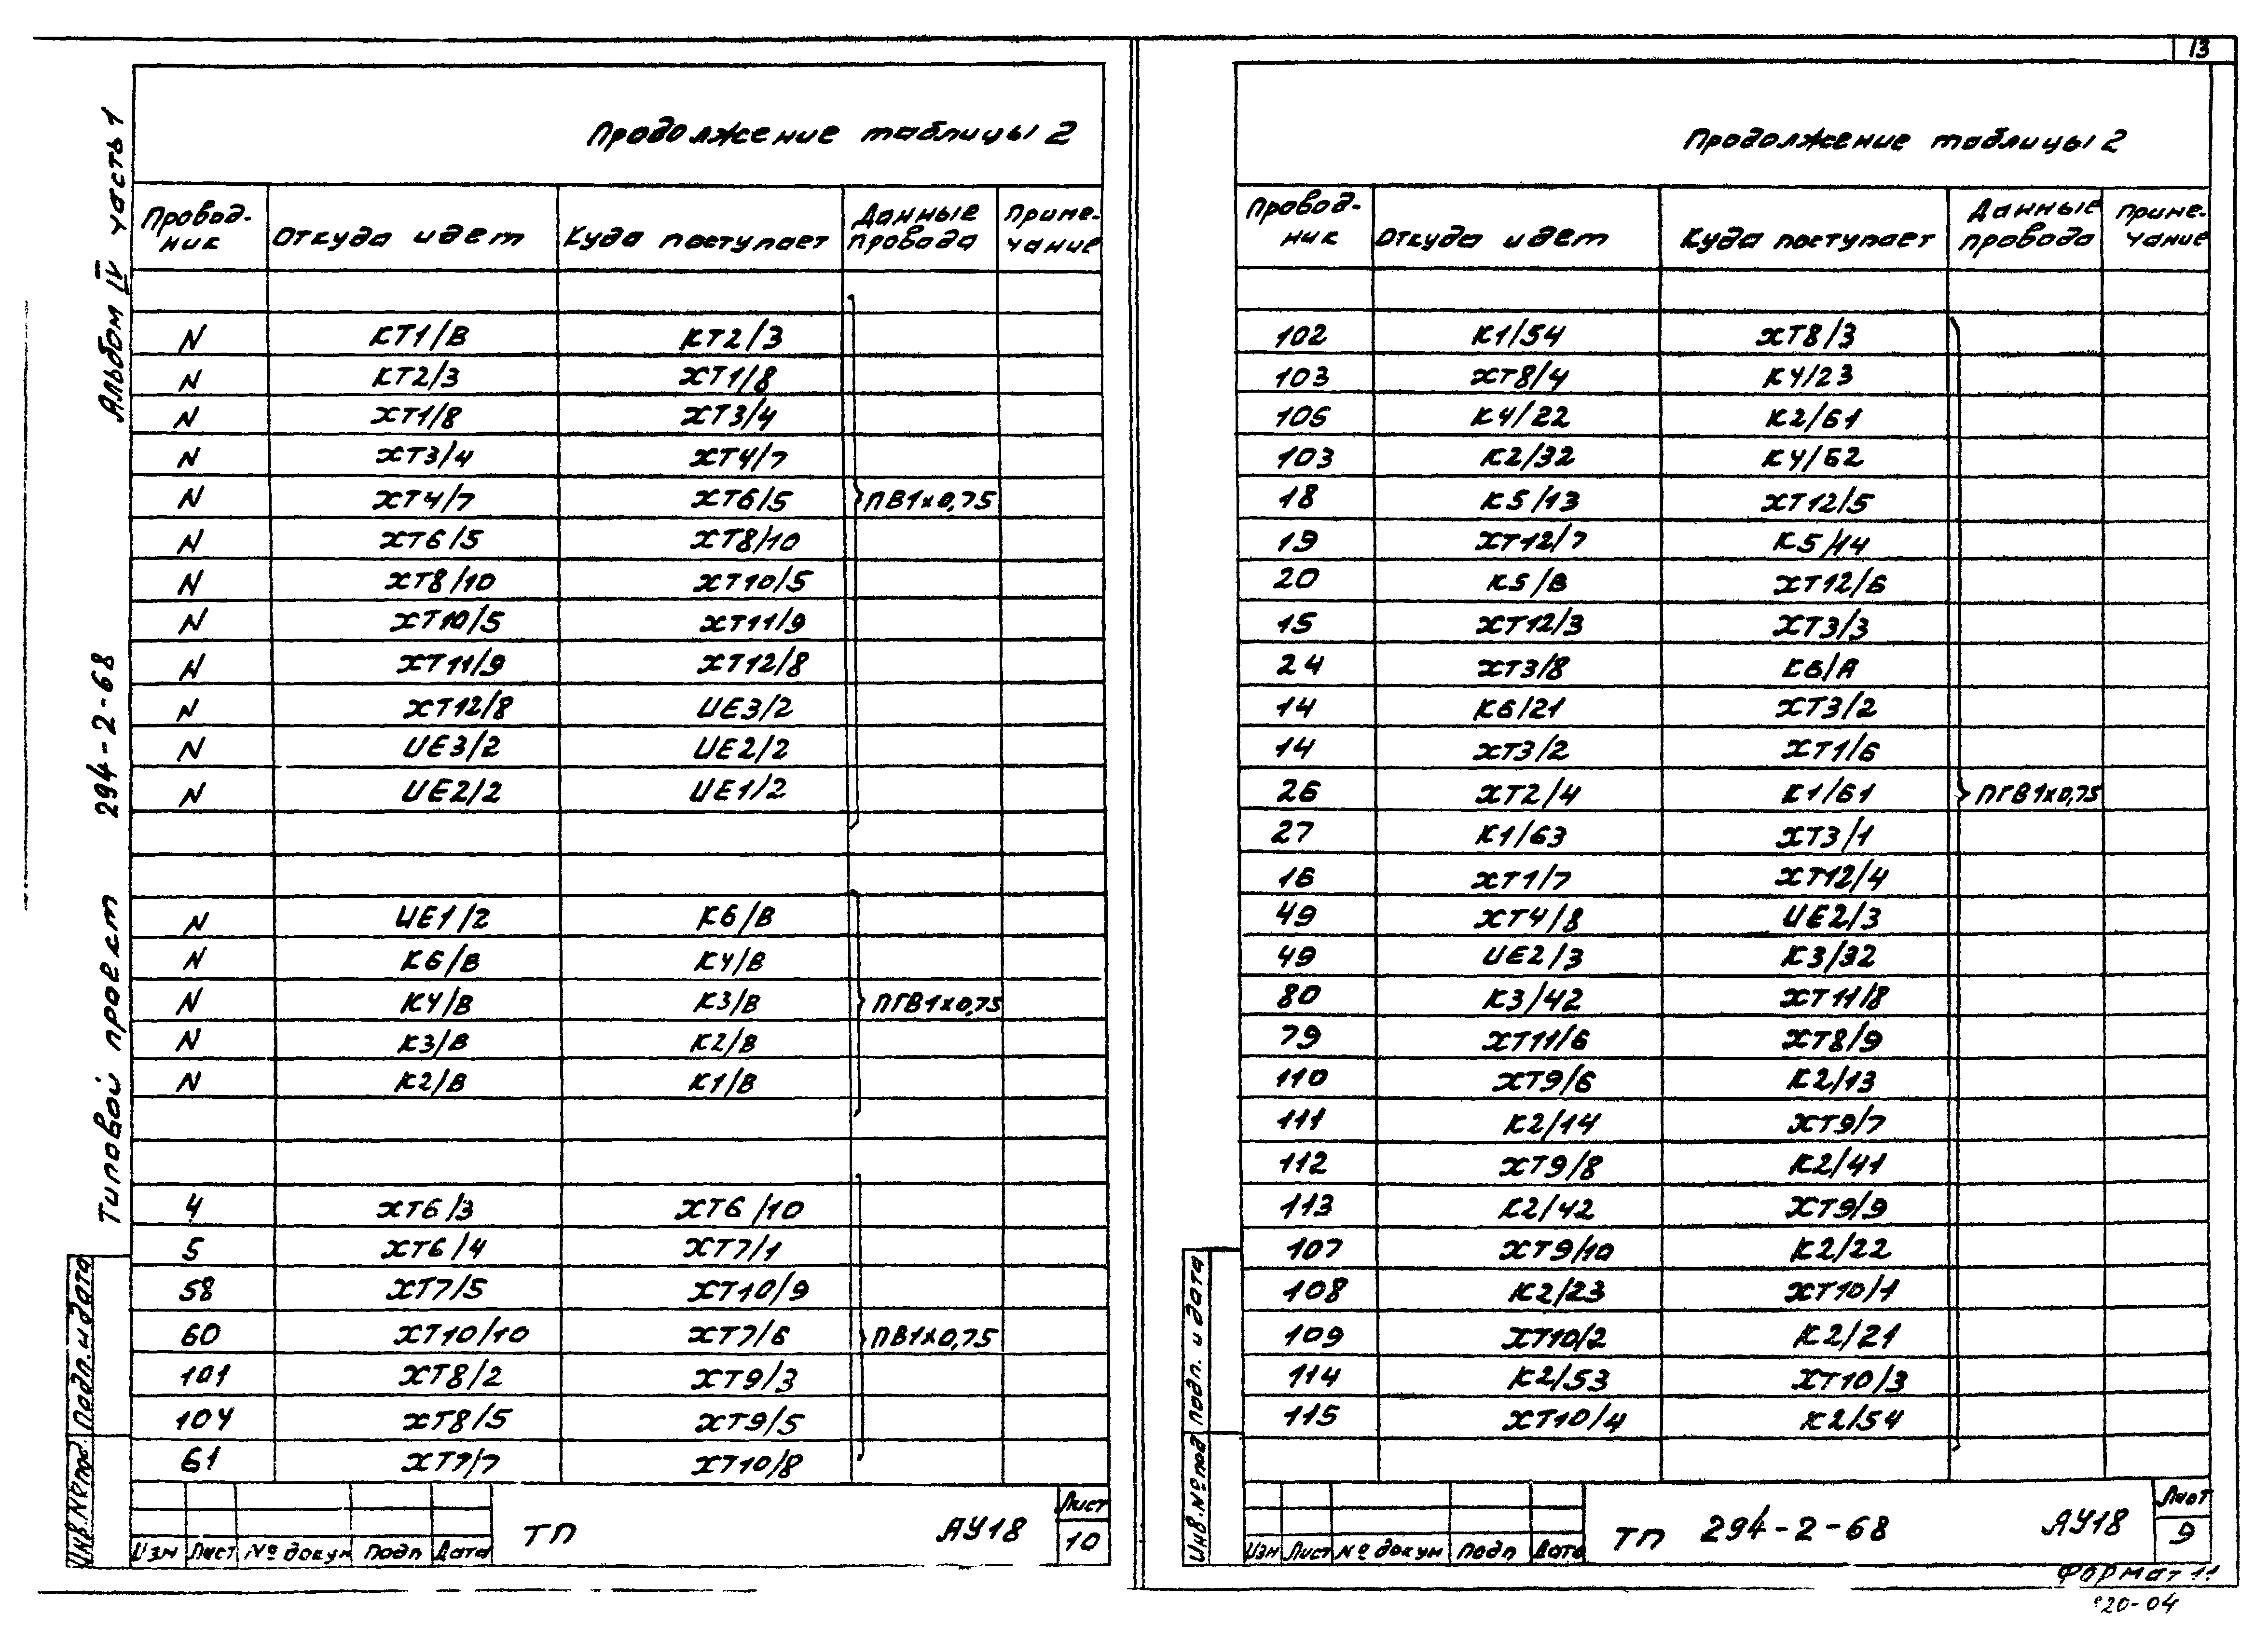 13
Альбом IV часть 1
Типовой проект 294-2-68
Подп. и дата
Инв.№ подл.
Продолжение таблицы 2
Провод-ник Откуда идет Куда поступает Данные провода Приме-чание
N КТ1/В КТ2/3
N КТ2/3 ХТ1/8
N ХТ1/8 ХТ3/4
N ХТ3/4 ХТ4/7
N ХТ4/7 ХТ6/5 ПВ1х0,75
N ХТ6/5 ХТ8/10
N ХТ8/10 ХТ10/5
N ХТ10/5 ХТ11/9
N ХТ11/9 ХТ12/8
N ХТ12/8 UE3/2
N UE3/2 UE2/2
N UE2/2 UE1/2
N UE1/2 К6/В
N К6/В К4/В
N К4/В К3/В ПГВ1х0,75
N К3/В К2/В
N К2/В К1/В
4 ХТ6/3 ХТ6/10
5 ХТ6/4 ХТ7/1
58 ХТ7/5 ХТ10/9
60 ХТ10/10 ХТ7/6 ПВ1х0,75
101 ХТ8/2 ХТ9/3
104 ХТ8/5 ХТ9/5
61 ХТ7/7 ХТ10/8
Изм Лист № докум Подп Дата
ТП
АУ18
Лист
10
Продолжение таблицы 2
Провод-ник Откуда идет Куда поступает Данные провода Приме-чание
102 К1/54 ХТ8/3
103 ХТ8/4 К4/23
105 К4/22 К2/61
103 К2/32 К4/62
18 К5/13 ХТ12/5
19 ХТ12/7 К5/14
20 К5/В ХТ12/6
15 ХТ12/3 ХТ3/3
24 ХТ3/8 К6/А
14 К6/21 ХТ3/2
14 ХТ3/2 ХТ1/6
26 ХТ2/4 К1/61 ПГВ1х0,75
27 К1/63 ХТ3/1
16 ХТ1/7 ХТ12/4
49 ХТ4/8 UE2/3
49 UE2/3 К3/32
80 К3/42 ХТ11/8
79 ХТ11/6 ХТ8/9
110 ХТ9/6 К2/13
111 К2/14 ХТ9/7
112 ХТ9/8 К2/41
113 К2/42 ХТ9/9
107 ХТ9/10 К2/22
108 К2/23 ХТ10/1
109 ХТ10/2 К2/21
114 К2/53 ХТ10/3
115 ХТ10/4 К2/54
Подп. и дата
Инв.№ под
Изм Лист № докум Подп Дата
ТП 294-2-68
АУ18
Лист
9
Формат 11
20-04